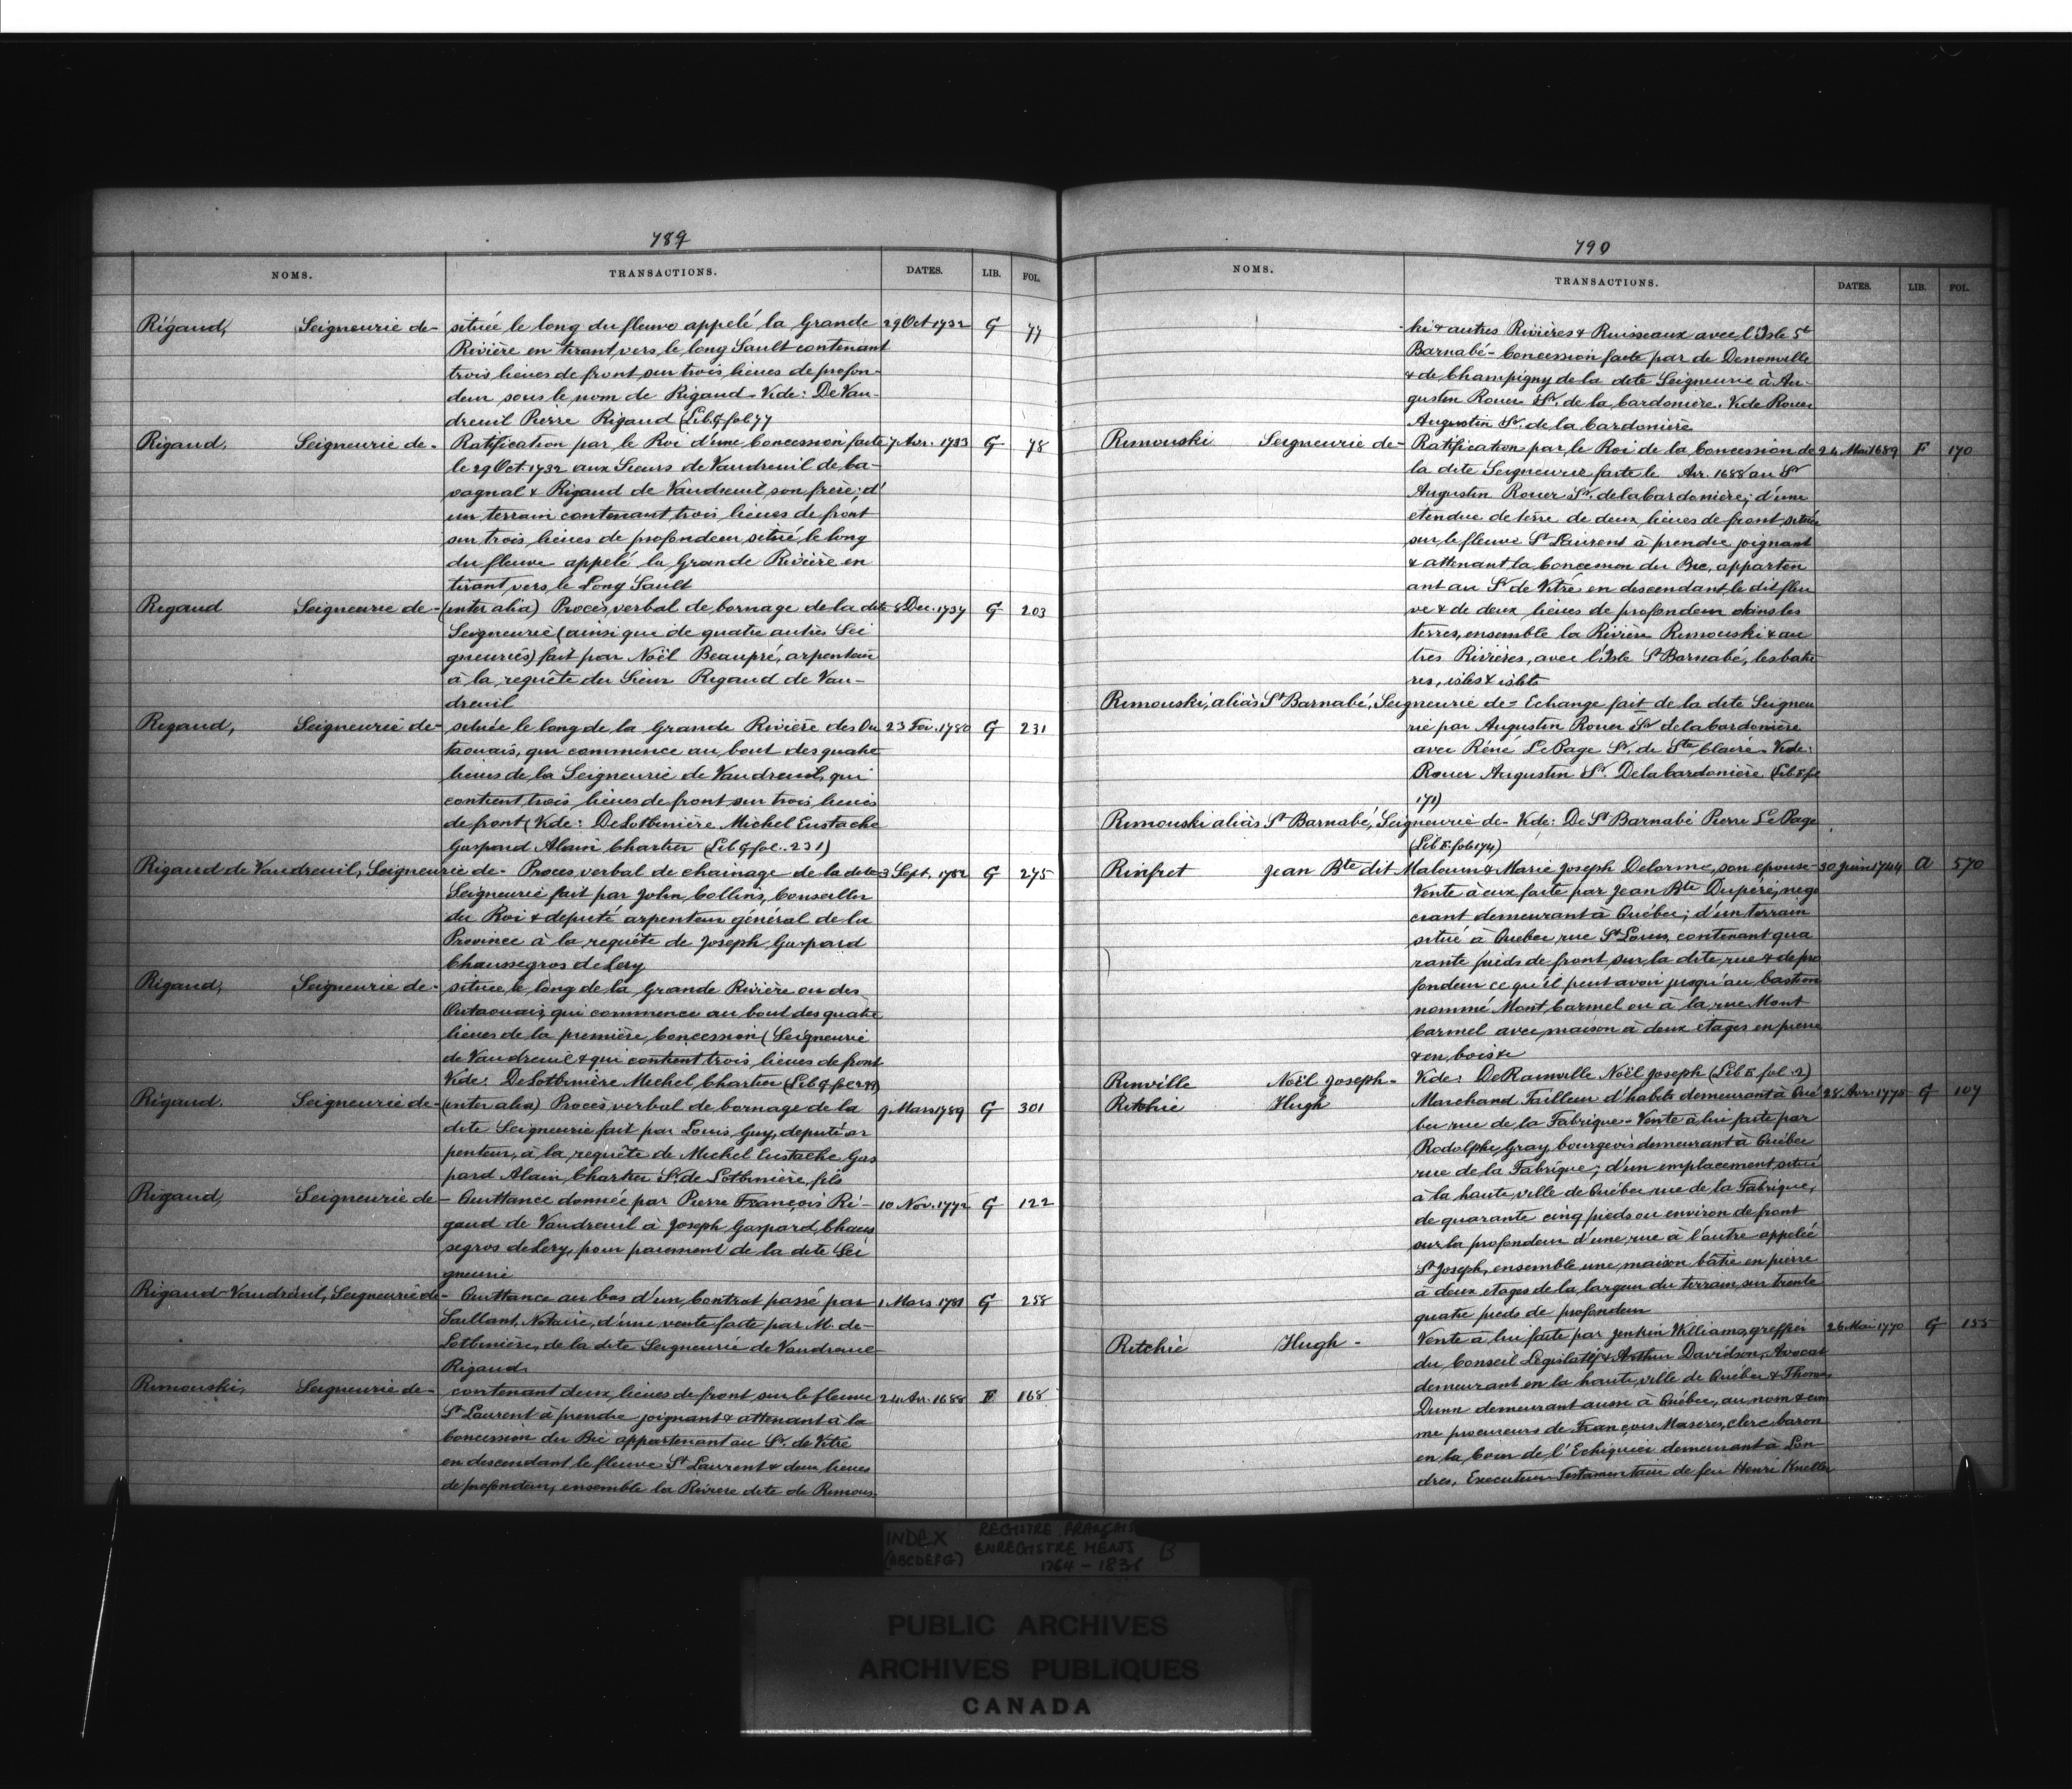 789
NOMS. TRANSACTIONS. DATES. LIB. FOL.
Rigaud, Seigneurie de- située le long du fleuve appelé la Grande 29 Oct 1732 G 77
Rivière en tirant vers le long Sault contenant
trois lieues de front sur trois lieues de profon-
deur sous le nom de Rigaud - Vide: De Vau-
dreuil Pierre Rigaud (Lib. G fol 77
Rigaud, Seigneurie de- Ratification par le Roi d'une Concession faite 7 Avr. 1733 G 78
le 29 Oct. 1732 aux Sieurs de Vaudreuil de Ca-
vagnal & Rigaud de Vaudreuil son frère; d'
un terrain contenant trois lieues de front
sur trois lieues de profondeur situé le long
du fleuve appelé la Grande Rivière en
tirant vers le Long Sault
Rigaud Seigneurie de- (inter alia) Procès verbal de bornage de la dite 8 Dec. 1737 G 203
Seigneurie (ainsi que de quatre autres Sei
gneuries) fait par Noël Beaupré, arpenteur
à la requête du Sieur Rigaud de Vau-
dreuil
Rigaud, Seigneurie de- située le long de la Grande Rivière des Ou 23 Fév. 1780 G 231
taouais, qui commence au bout des quatre
lieues de la Seigneurie de Vaudreuil, qui
contient trois lieues de front sur trois lieues
de front (Vide: DeLotbinière Michel Eustache
Gaspard Alain Chartier (Lib G fol. 231)
Rigaud de Vaudreuil, Seigneurie de- Procès verbal de chainage de la dite 3 Sept. 1782 G 275
Seigneurie fait par John Collins, Conseiller
du Roi & député arpenteur général de la
Province à la requête de Joseph Gaspard
Chaussegros de Lery
Rigaud, Seigneurie de- située le long de la Grande Rivière ou des
Outaouais qui commence au bout des quatre
lieues de la première Concession (Seigneurie
de Vaudreuil & qui contient trois lieues de front
Vide: DeLotbinière Michel Chartier (Lib G fol 299)
Rigaud. Seigneurie de- (inter alia) Procès verbal de bornage de la 9 Mars 1789 G 301
dite Seigneurie fait par Louis Guy, député ar
penteur, à la requête de Michel Eustache Gas
pard Alain Chartier Sr. de Lotbinière, fils
Rigaud, Seigneurie de - Quittance donnée par Pierre François Ri- 10 Nov. 1772 G 122
gaud de Vaudreuil à Joseph Gaspard Chaus
segros de Lery, pour paiement de la dite Sei
gneurie
Rigaud-Vaudreuil, Seigneurie de - Quittance au bas d'un Contrat passé par 1 Mars 1781 G 258
Saillant, Notaire, d'une vente faite par M. de-
Lotbinière, de la dite Seigneurie de Vaudreuil
Rigaud
Rimouski, Seigneurie de- contenant deux lieues de front sur le fleuve 24 Avr. 1688 F 168
St Laurent à prendre joignant & attenant à la
Concession du Bic appartenant au Sr. de Vitré
en descendant le fleuve St Laurent & deux lieues
de profondeur, ensemble la Rivière dite de Rimous-
790
NOMS. TRANSACTIONS. DATES. LIB. FOL.
ki & autres Rivières & Ruisseaux avec l'Isle St
Barnabé - Concession faite par de Denonville
& de Champigny de la dite Seigneurie à Au-
gustin Rouer Sr. de la Cardonière. Vide Rouer
Augustin Sr. de la Cardonière
Rimouski Seigneurie de- Ratification par le Roi de la Concession de 24 Mai 1689 F 170
la dite Seigneurie faite le Avr. 1688 au Sr
Augustin Rouer Sr. de la Cardonière; d'une
etendue de terre de deux lieues de front située
sur le fleuve St Laurent à prendre joignant
& attenant la Concession du Bic, apparten
ant au Sr de Vitré en descendant le dit fleu
ve & de deux lieues de profondeur dans les
terres, ensemble la Rivière Rimouski & au
tres Rivières, avec l'Isle St Barnabé, les battu
res, isles & islets
Rimouski, aliàs St Barnabé, Seigneurie de- Echange fait de la dite Seigneu
rie par Augustin Rouer Sr de la Cardonière
avec Réné LePage Sr. de Ste Claire - Vide:
Rouer Augustin Sr. De la Cardonière (Lib F fol
171)
Rimouski aliàs St Barnabé, Seigneurie de- Vide: De St Barnabé Pierre LePage
(Lib F. fol 174)
Rinfret Jean Bte dit Malouin & Marie Joseph Delorme, son epouse- 30 Juin 1744 A 570
Vente à eux faite par Jean Bte Dupéré, nego
ciant demeurant à Québec; d'un terrain
situé à Quebec rue St Louis, contenant qua
rante pieds de front sur la dite rue & de pro
fondeur ce qu'il peut avoir jusqu'au bastion
nommé Mont Carmel ou à la rue Mont
Carmel avec maison à deux étages en pierre
& en bois &c
Rinville Noël Joseph- Vide: DeRainville Noël Joseph (Lib E fol. 2)
Ritchie Hugh Marchand Tailleur d'habits demeurant à Qué 28 Avr. 1775 G 107
bec rue de la Fabrique - Vente à lui faite par
Rodolphe Gray, bourgeois demeurant à Québec
rue de la Fabrique; d'un emplacement situé
à la haute ville de Québec rue de la Fabrique,
de quarante cinq pieds ou environ de front
sur la profondeur d'une rue à l'autre appelée
St Joseph, ensemble une maison bâtie en pierre
à deux etages de la largeur du terrain sur trente
quatre pieds de profondeur
Ritchie Hugh - Vente à lui faite par Jenkin Williams, greffier 26 Mai 1770 G 155
du Conseil Législatif & Arthur Davidson, Avocat
demeurant en la haute ville de Québec & Thomas
Dunn demeurant aussi à Québec, au nom & com
me procureurs de François Maseres, clerc baron
en la Cour de l'Echiquier demeurant à Lon
dres, Executeur Testamentaire de feu Henri Kneller
INDEX REGISTRE FRANÇAIS
(ABCDEFG) ENREGISTREMENTS B
1764 - 183
PUBLIC ARCHIVES
ARCHIVES PUBLIQUES
CANADA